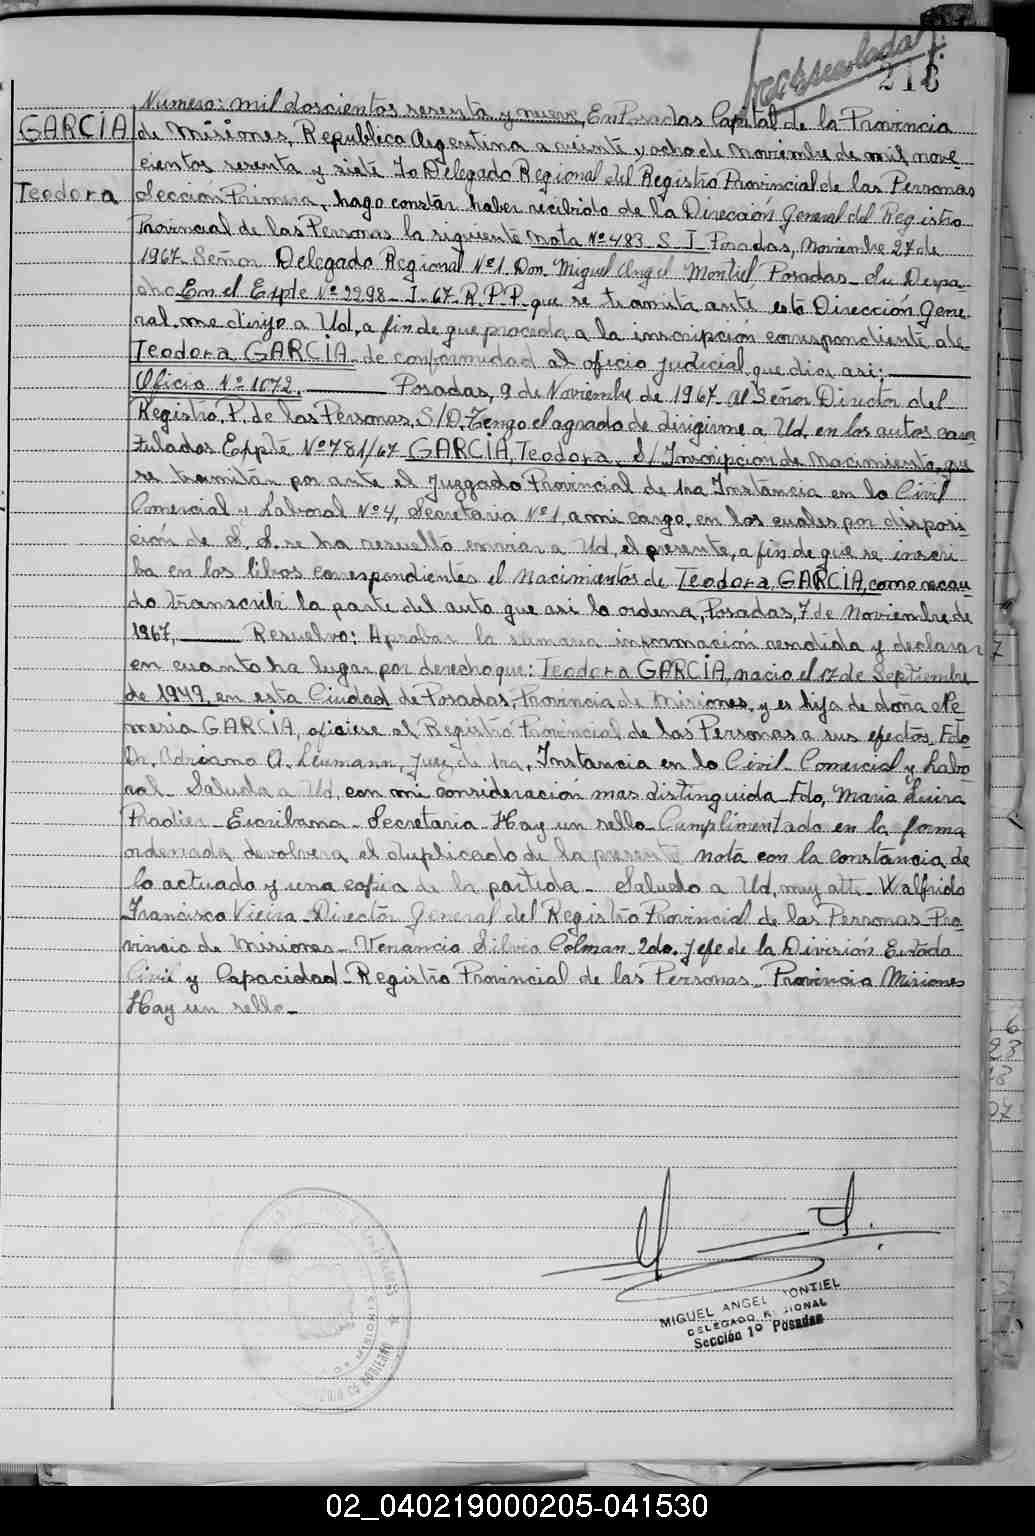 218
GARCIA
Teodora
Numero: mil doscientos sesenta y nueve, En Posadas Capital de la Provincia
de Misiones, Republica Argentina a veinte y ocho de Noviembre de mil nove
cientos sesenta y siete Yo Delegado Regional del Registro Provincial de las Personas
Sección Primera, hago constar haber recibido de la Dirección General del Registro
Provincial de las Personas la siguiente nota Nº 483 S I Posadas, Noviembre 27 de
1967 Señor Delegado Regional Nº 1 Don Miguel Angel Montiel Posadas Su Despa-
cho En el Expte Nº 2298 I 67 R.P.P. que se tramita ante esta Dirección Gene-
ral, me dirijo a Ud, a fin de que proceda a la inscripción correspondiente de
Teodora GARCIA de conformidad al oficio judicial que dice asi:
Oficio Nº 1072. Posadas, 9 de Noviembre de 1967 Al Señor Director del
Registro, P. de las Personas, S/D. Tengo el agrado de dirigirme a Ud, en los autos cara
tulados Expte Nº 781/67 GARCIA, Teodora, S/ Inscripcion de Nacimiento, que
se tramitan por ante el Juzgado Provincial de 1ra Instancia en lo Civil
Comercial y Laboral Nº 4, Secretaria Nº 1, a mi cargo, en los cuales por disposi-
ción de S. S. se ha resuelto enviar a Ud, el presente, a fin de que se inscri
ba en los libros correspondientes el Nacimiento de Teodora GARCIA, como recau
do transcribi la parte del auto que asi lo ordena, Posadas, 7 de Noviembre de
1967, Resuelvo: Aprobar la sumaria información rendida y declarar
en cuanto ha lugar por derecho que: Teodora GARCIA, nacio el 17 de Septiembre
de 1949, en esta Ciudad de Posadas, Provincia de Misiones, y es hija de doña Ne
mesia GARCIA, oficiese al Registro Provincial de las Personas a sus efectos, Fdo
Dr. Adriano A. Leumann, Juez de 1ra, Instancia en lo Civil Comercial y Labo
ral Saluda a Ud, con mi consideración mas distinguida Fdo, Maria Luisa
Pradier Escribana Secretaria Hay un sello Cumplimentado en la forma
ordenada devolvera el duplicado de la presente nota con la constancia de
lo actuado y una copia de la partida Saludo a Ud, muy atte Walfrido
Francisco Vieira Director General del Registro Provincial de las Personas Pro-
vincia de Misiones Venancia Silvia Colman 2do. Jefe de la División Estado
Civil y Capacidad Registro Provincial de las Personas Provincia Misiones
Hay un sello
MIGUEL ANGEL MONTIEL
DELEGADO REGIONAL
Sección 1º Posadas
02_040219000205-041530